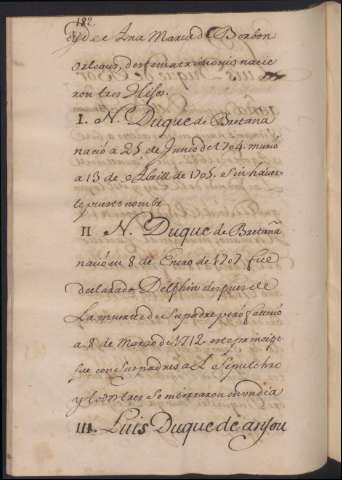 182
y de Ana Maria de Borbon
Orleans, deste matrimonio nacie
ron tres Hijos.
I. N. Duque de Bretaña
nació a 25 de Junio de 1704. murió
a 13 de Abrill de 1705. sin haver
le puesto nombre
II N. Duque de Bretaña
nació en 8 de Enero de 1707 fue
declarado Delphin despues de
La muerte de su padre pero
a 8 de Marzo de 1712 este principe
fue con sus padres a L Sepulchro
y los tres se enterraron en un dia
III. Luis Duque de anjou